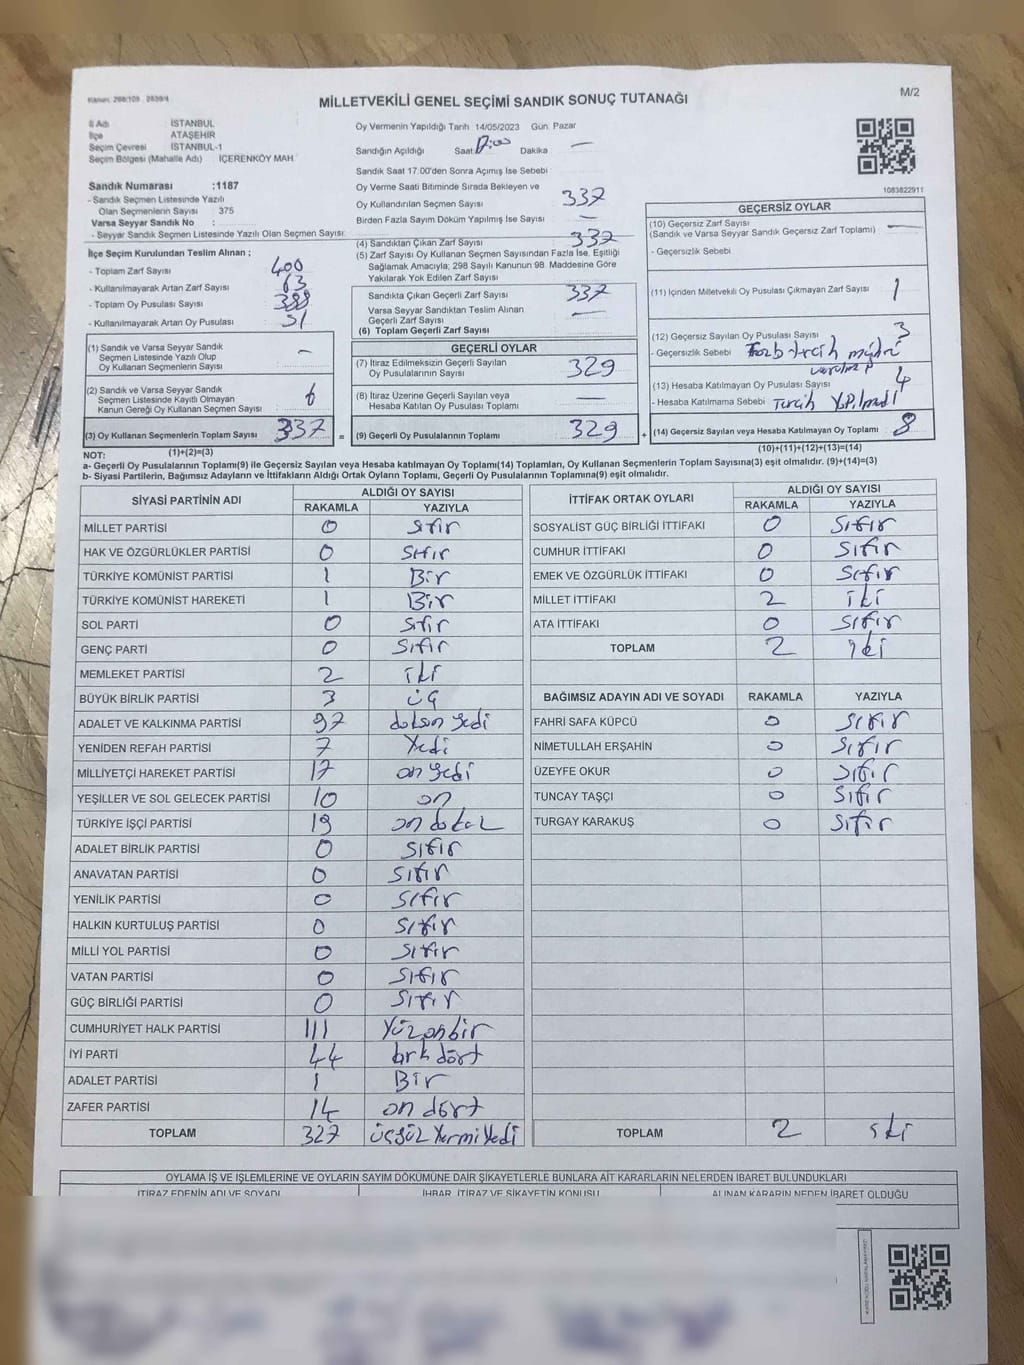 Kanun: 298/109 , 2839/4
MİLLETVEKİLİ GENEL SEÇİMİ SANDIK SONUÇ TUTANAĞI
M/2
İl Adı : İSTANBUL
İlçe : ATAŞEHİR
Seçim Çevresi : İSTANBUL-1
Seçim Bölgesi (Mahalle Adı) : İÇERENKÖY MAH.
Sandık Numarası :1187
- Sandık Seçmen Listesinde Yazılı
Olan Seçmenlerin Sayısı : 375
Varsa Seyyar Sandık No :
- Seyyar Sandık Seçmen Listesinde Yazılı Olan Seçmen Sayısı:
Oy Vermenin Yapıldığı Tarih 14/05/2023 Gün Pazar
Sandığın Açıldığı Saat Dakika —
Sandık Saat 17.00'den Sonra Açımış İse Sebebi
Oy Verme Saati Bitiminde Sırada Bekleyen ve
Oy Kullandırılan Seçmen Sayısı 337
Birden Fazla Sayım Döküm Yapılmış İse Sayısı —
1083822911
İlçe Seçim Kurulundan Teslim Alınan ;
- Toplam Zarf Sayısı 400
- Kullanılmayarak Artan Zarf Sayısı 63
- Toplam Oy Pusulası Sayısı 388
- Kullanılmayarak Artan Oy Pusulası 51
(1) Sandık ve Varsa Seyyar Sandık
Seçmen Listesinde Yazılı Olup
Oy Kullanan Seçmenlerin Sayısı —
(2) Sandık ve Varsa Seyyar Sandık
Seçmen Listesinde Kayıtlı Olmayan
Kanun Gereği Oy Kullanan Seçmen Sayısı 6
(3) Oy Kullanan Seçmenlerin Toplam Sayısı 337
(1)+(2)=(3)
(4) Sandıktan Çıkan Zarf Sayısı 337
(5) Zarf Sayısı Oy Kullanan Seçmen Sayısından Fazla İse, Eşitliği
Sağlamak Amacıyla; 298 Sayılı Kanunun 98. Maddesine Göre
Yakılarak Yok Edilen Zarf Sayısı
Sandıkta Çıkan Geçerli Zarf Sayısı 337
Varsa Seyyar Sandıktan Teslim Alınan
Geçerli Zarf Sayısı —
(6) Toplam Geçerli Zarf Sayısı
GEÇERLİ OYLAR
(7) İtiraz Edilmeksizin Geçerli Sayılan
Oy Pusulalarının Sayısı 329
(8) İtiraz Üzerine Geçerli Sayılan veya
Hesaba Katılan Oy Pusulası Toplamı —
= (9) Geçerli Oy Pusulalarının Toplamı 329
GEÇERSİZ OYLAR
(10) Geçersiz Zarf Sayısı —
(Sandık ve Varsa Seyyar Sandık Geçersiz Zarf Toplamı)
- Geçersizlik Sebebi
(11) İçinden Milletvekili Oy Pusulası Çıkmayan Zarf Sayısı 1
(12) Geçersiz Sayılan Oy Pusulası Sayısı 3
- Geçersizlik Sebebi
(13) Hesaba Katılmayan Oy Pusulası Sayısı 4
- Hesaba Katılmama Sebebi Tercih Yapılmadı
+ (14) Geçersiz Sayılan veya Hesaba Katılmayan Oy Toplamı 8
(10)+(11)+(12)+(13)=(14)
NOT:
a- Geçerli Oy Pusulalarının Toplamı(9) ile Geçersiz Sayılan veya Hesaba katılmayan Oy Toplamı(14) Toplamları, Oy Kullanan Seçmenlerin Toplam Sayısına(3) eşit olmalıdır. (9)+(14)=(3)
b- Siyasi Partilerin, Bağımsız Adayların ve İttifakların Aldığı Ortak Oyların Toplamı, Geçerli Oy Pusulalarının Toplamına(9) eşit olmalıdır.
SİYASİ PARTİNİN ADI
ALDIĞI OY SAYISI
RAKAMLA YAZIYLA
MİLLET PARTİSİ 0 sıfır
HAK VE ÖZGÜRLÜKLER PARTİSİ 0 sıfır
TÜRKİYE KOMÜNİST PARTİSİ 1 Bir
TÜRKİYE KOMÜNİST HAREKETİ 1 Bir
SOL PARTİ 0 sıfır
GENÇ PARTİ 0 sıfır
MEMLEKET PARTİSİ 2 iki
BÜYÜK BİRLİK PARTİSİ 3 üç
ADALET VE KALKINMA PARTİSİ 97 doksan yedi
YENİDEN REFAH PARTİSİ 7 Yedi
MİLLİYETÇİ HAREKET PARTİSİ 17 on yedi
YEŞİLLER VE SOL GELECEK PARTİSİ 10 on
TÜRKİYE İŞÇİ PARTİSİ 19 on dokuz
ADALET BİRLİK PARTİSİ 0 sıfır
ANAVATAN PARTİSİ 0 sıfır
YENİLİK PARTİSİ 0 sıfır
HALKIN KURTULUŞ PARTİSİ 0 sıfır
MİLLİ YOL PARTİSİ 0 sıfır
VATAN PARTİSİ 0 sıfır
GÜÇ BİRLİĞİ PARTİSİ 0 sıfır
CUMHURİYET HALK PARTİSİ 111 Yüzonbir
İYİ PARTİ 44 kırk dört
ADALET PARTİSİ 1 Bir
ZAFER PARTİSİ 14 on dört
TOPLAM 327 üçyüz Yermi Yedi
İTTİFAK ORTAK OYLARI
ALDIĞI OY SAYISI
RAKAMLA YAZIYLA
SOSYALİST GÜÇ BİRLİĞİ İTTİFAKI 0 sıfır
CUMHUR İTTİFAKI 0 sıfır
EMEK VE ÖZGÜRLÜK İTTİFAKI 0 sıfır
MİLLET İTTİFAKI 2 iki
ATA İTTİFAKI 0 sıfır
TOPLAM 2 iki
BAĞIMSIZ ADAYIN ADI VE SOYADI RAKAMLA YAZIYLA
FAHRİ SAFA KÜPCÜ 0 sıfır
NİMETULLAH ERŞAHİN 0 sıfır
ÜZEYFE OKUR 0 sıfır
TUNCAY TAŞÇI 0 sıfır
TURGAY KARAKUŞ 0 sıfır
TOPLAM 2 iki
OYLAMA İŞ VE İŞLEMLERİNE VE OYLARIN SAYIM DÖKÜMÜNE DAİR ŞİKAYETLERLE BUNLARA AİT KARARLARIN NELERDEN İBARET BULUNDUKLARI
İTİRAZ EDENİN ADI VE SOYADI İHBAR, İTİRAZ VE ŞİKAYETİN KONUSU ALINAN KARARIN NEDEN İBARET OLDUĞU